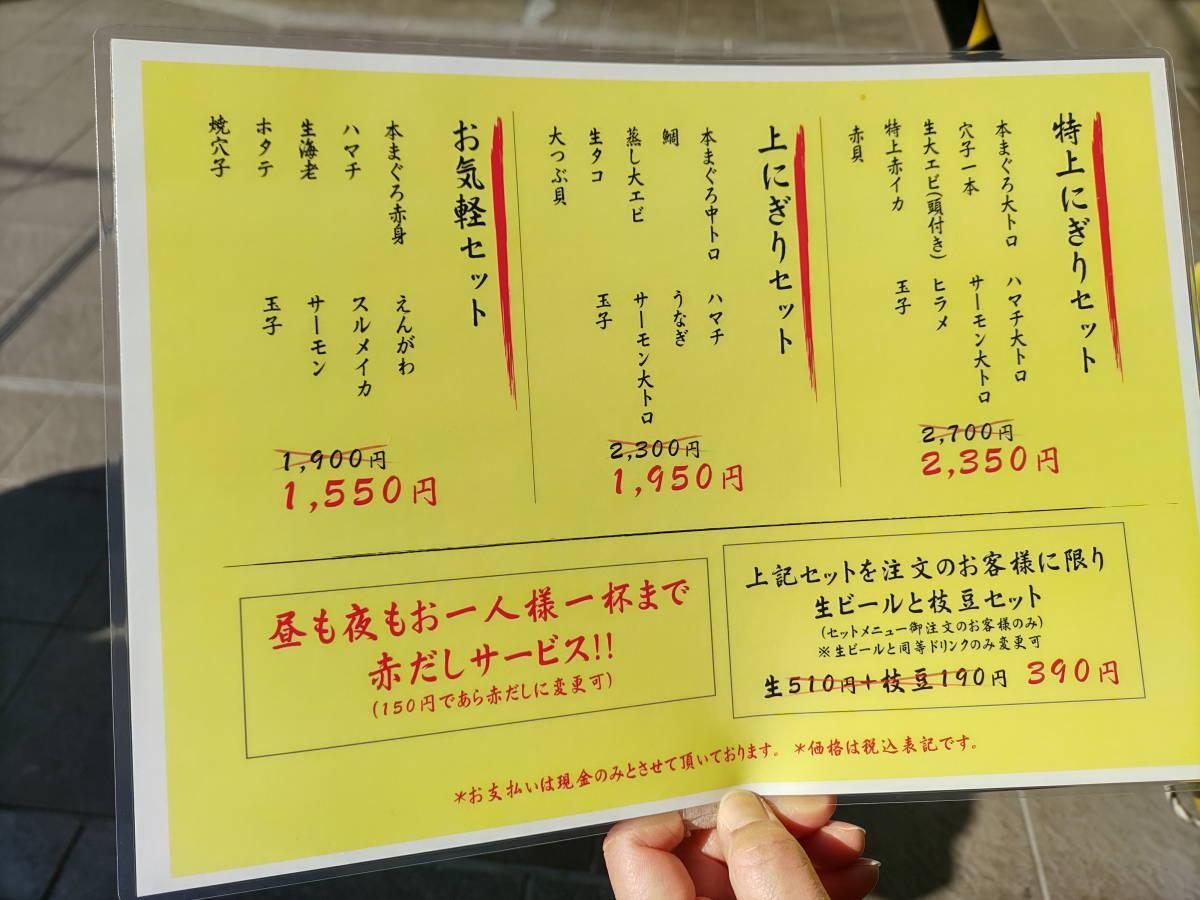 特上にぎりセット
本まぐろ大トロ
穴子一本
生大エビ(頭付き)
特上赤イカ
赤貝
ハマチ大トロ
サーモン大トロ
ヒラメ
玉子
2,700円
2,350円
上にぎりセット
本まぐろ中トロ
鯛
蒸し大エビ
生タコ
大つぶ貝
ハマチ
うなぎ
サーモン大トロ
玉子
2,300円
1,950円
お気軽セット
本まぐろ赤身
ハマチ
生海老
ホタテ
焼穴子
えんがわ
スルメイカ
サーモン
玉子
1,900円
1,550円
上記セットを注文のお客様に限り
生ビールと枝豆セット
(セットメニュー御注文のお客様のみ)
※生ビールと同等ドリンクのみ変更可
生510円+枝豆190円 390円
昼も夜もお一人様一杯まで
赤だしサービス!!
(150円であら赤だしに変更可)
*お支払いは現金のみとさせて頂いております。 *価格は税込表記です。